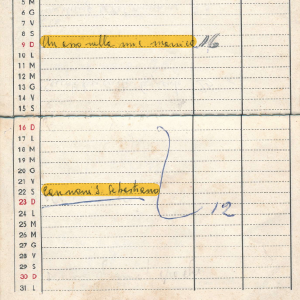 5 M
6 G
7 V
8 S
9 D Un asso nella mia manica 16
10 L
11 M
12 M
13 G
14 V
15 S
16 D
17 L
18 M
19 M
20 G
21 V
22 S Cannoni S. Sebastiano
23 D
24 L 12
25 M
26 M
27 G
28 V
29 S
30 D
31 L